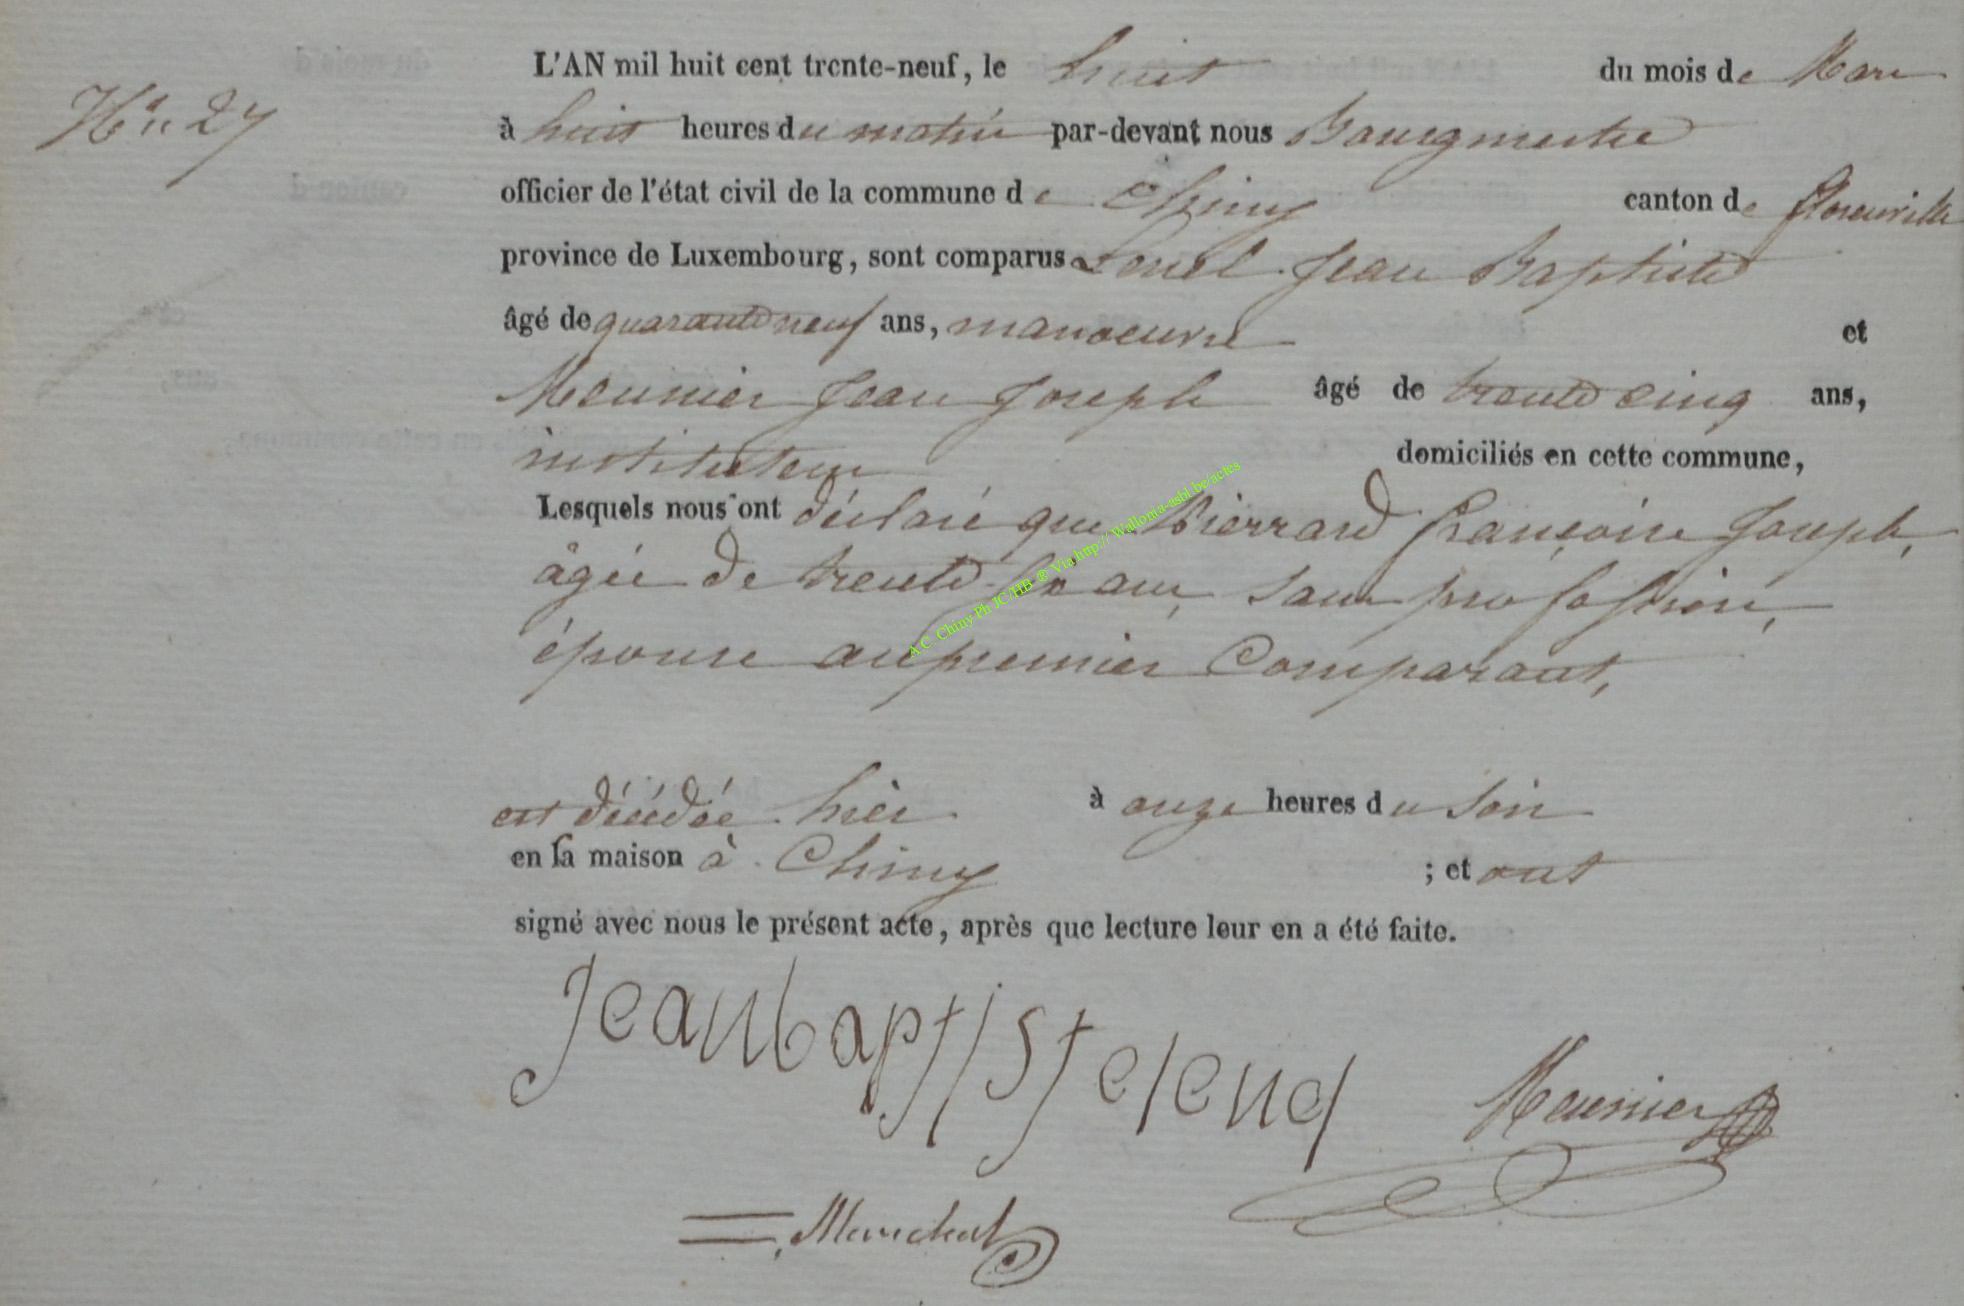 L'AN mil huit cent trente-neuf, le huit du mois de Mars
N° 27
à huit heures du matin par-devant nous Bourgmestre
officier de l'état civil de la commune de Chiny canton de florenville
province de Luxembourg, sont comparus Jean Baptiste
âgé de quarante neuf ans, manoeuvre et
Meunier Jean Joseph âgé de trente cinq ans,
instituteur domiciliés en cette commune,
Lesquels nous ont déclaré que Pierrard françoise Joseph,
âgée de trente ans, sans profession,
épouse au premier Comparant,
A C. Chiny Ph JC/HB ® Via http:// Wallonia-asbl.be/actes
est décédée hier à onze heures du soir
en sa maison à Chiny ; et ont
signé avec nous le présent acte, après que lecture leur en a été faite.
Jean baptiste
Meunier
Marechal